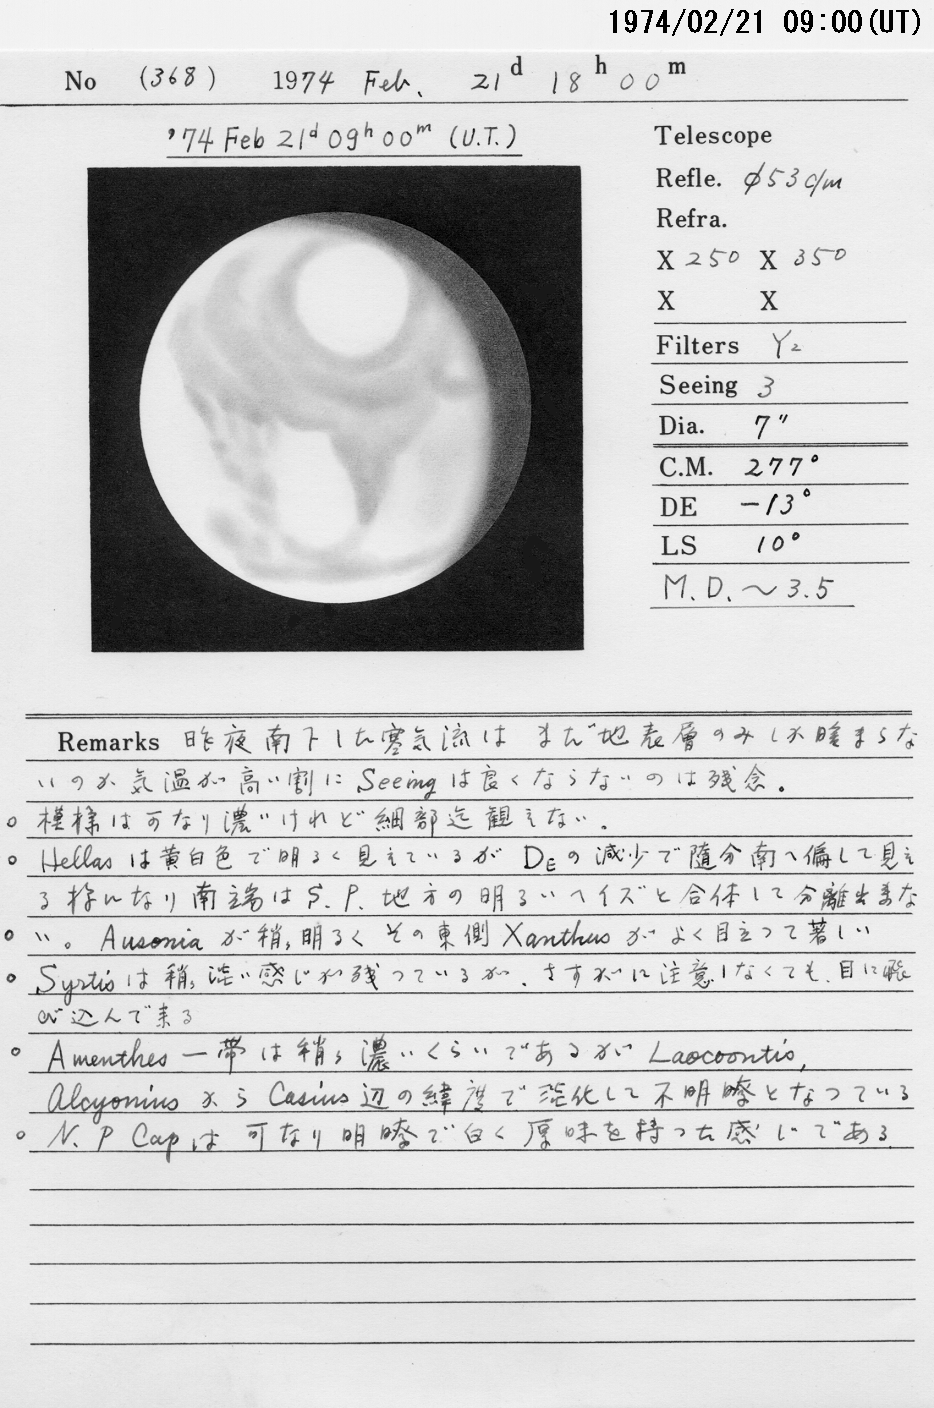 1974/02/21 09:00(UT)
No (368) 1974 Feb. 21d 18h 00m
'74 Feb 21d 09h 00m (U.T.)
Telescope
Refle. φ53c/m
Refra.
X 250 X 350
X X
Filters Y2
Seeing 3
Dia. 7"
C.M. 277°
DE -13°
LS 10°
M.D. ~3.5
Remarks 昨夜南下した寒気流は まだ地表層のみしか暖まらな
いのか気温が高い割に Seeingは良くならないのは残念。
○ 模様は可なり濃いけれど細部迄観えない。
○ Hellasは黄白色で明るく見えているが DEの減少で随分南へ偏して見え
る様になり南端は S.P.地方の明るいヘイズと合体して分離出来な
○ い。Ausoniaが稍々明るく その東側 Xanthusがよく目立って著しい
○ Syrtisは稍々淡い感じが残っているが、さすがに注意しなくても、目に飛
び込んで来る
○ Amenthes一帯は稍々濃いくらいであるが Laocoontis,
Alcyoniusから Casius辺の緯度で淡化して不明瞭となっている
○ N.P Capは可なり明瞭で白く厚味を持った感じである